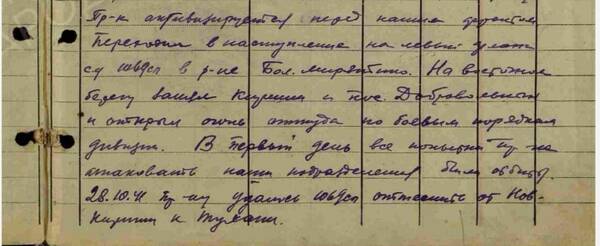 Пр-к активизируется перед нашим фронтом
Переходил в наступление на левый фланг
сд в р-не Бол. На восточном
берегу занял Кириши и пос. Добровольный
и открыл огонь оттуда по боевым порядкам
дивизии. В первый день все попытки пр-ка
атаковать наши подразделения были отбиты.
28.10.41 пр-ку удалось оттеснить от Нов-
Кириши к